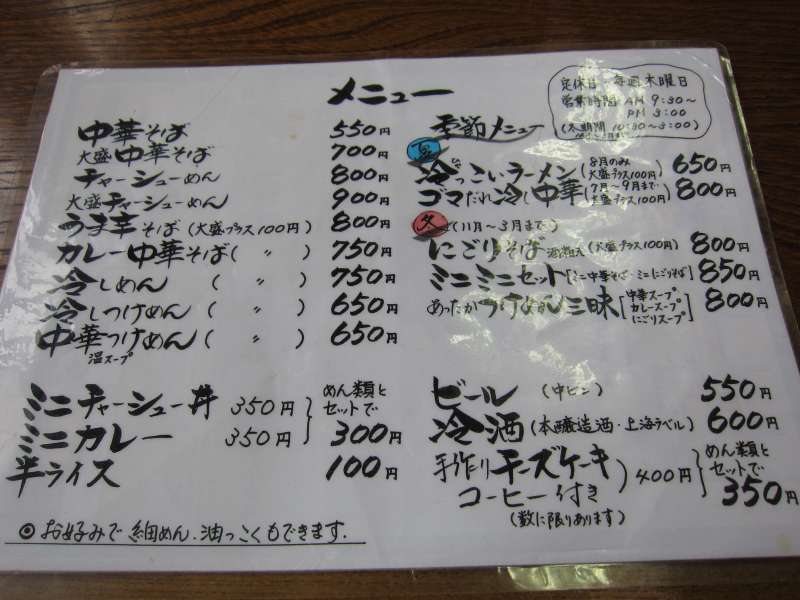 メニュー
中華そば 550円
大盛中華そば 700円
チャーシューめん 800円
大盛チャーシューめん 900円
うま辛そば(大盛プラス100円) 800円
カレー中華そば( 〃 ) 750円
冷しめん ( 〃 ) 750円
冷しつけめん ( 〃 ) 650円
中華つけめん ( 〃 ) 650円
温スープ
ミニチャーシュー丼 350円
ミニカレー 350円
めん類とセットで 300円
半ライス 100円
◎ お好みで 細めん.油っこくもできます.
定休日 毎週木曜日
営業時間 AM 9:30~
PM 3:00
(冬期間 10:30~3:00)
季節メニュー
夏
冷やっこいラーメン(8月のみ 大盛プラス100円) 650円
ゴマだれ冷し中華(7月~9月まで 大盛プラス100円) 800円
冬 (11月~3月まで)
にごりそば 酒粕入(大盛プラス100円) 800円
ミニミニセット[ミニ中華そば・ミニにごりそば] 850円
あったかつけめん三昧[中華スープ カレースープ にごりスープ] 800円
ビール (中ビン) 550円
冷酒(本醸造酒・上海ラベル) 600円
手作りチーズケーキ
コーヒー付き
400円
めん類とセットで 350円
(数に限りあります)